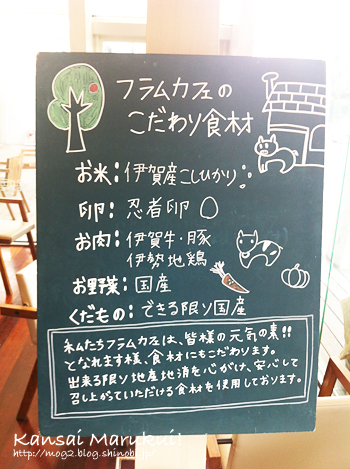 フラムカフェの
こだわり食材
お米:伊賀産こしひかり
卵:忍者卵
お肉:伊賀牛・豚
伊勢地鶏
お野菜:国産
くだもの:できる限り国産
私たちフラムカフェは、皆様の元気の素!!
となれます様、食材にもこだわります。
出来る限り地産地消を心がけ、安心して
召し上がっていただける食材を使用しております。
Kansai Marukui!
http://mog2.blog.shinobi.jp/